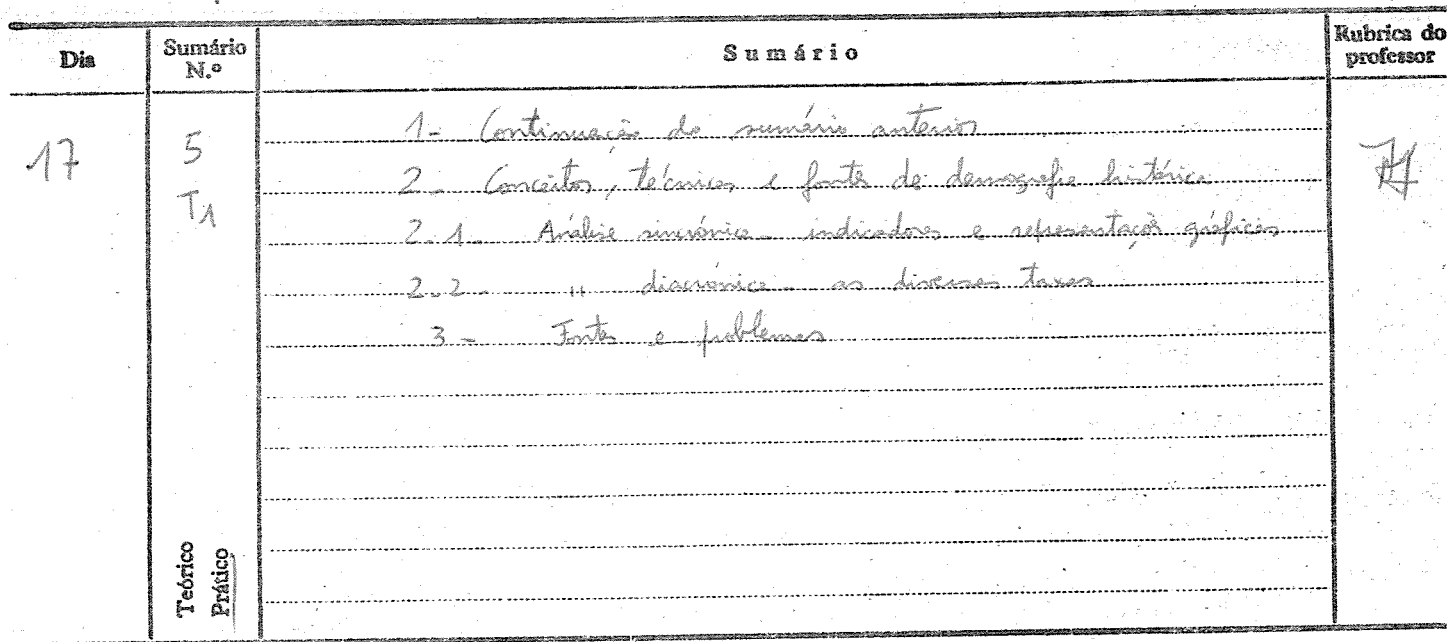 Dia Sumário N.º Sumário Rubrica do professor
17 5 T1
1- Continuação do sumário anterior
2- Conceitos, técnicas e fontes de demografia histórica
2.1- Análise sincrónica - indicadores e representações gráficas
2.2- " diacrónica - as diversas taxas
3- Fontes e problemas
Teórico
Prático